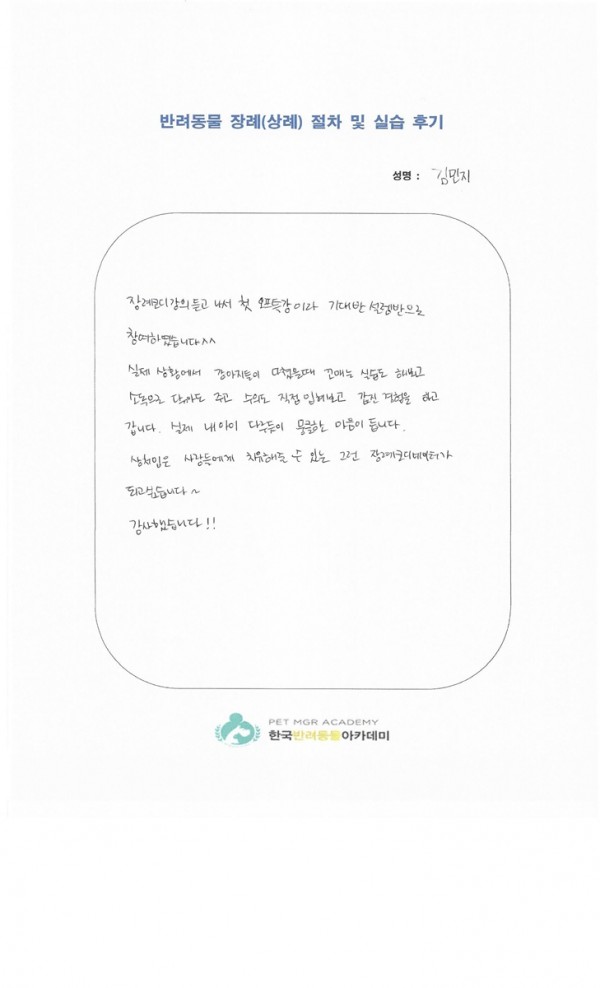 반려동물 장례(상례) 절차 및 실습 후기
성명 : 김민지
장례코디강의듣고 나서 첫 오프특강이라 기대반 설렘반으로
참여하였습니다^^
실제 상황에서 강아지들이 다쳤을때 꼬매는 실습도 해보고
소독으로 닦아도 주고 수의도 직접 입혀보고 값진 경험을 하고
갑니다. 실제 내아이 다루듯이 뭉클한 마음이 듭니다.
상처입은 사람들에게 치유해줄 수 있는 그런 장례코디네이터가
되고싶습니다~
감사했습니다!!
PET MGR ACADEMY
한국반려동물아카데미